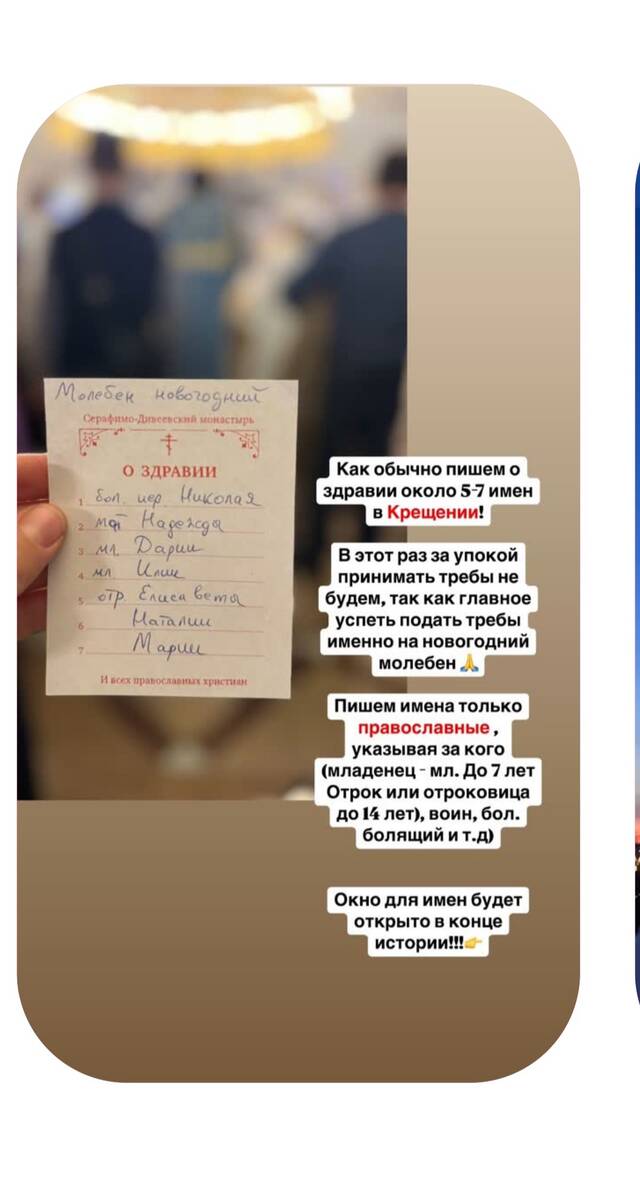 Молебен новогодний
Серафимо-Дивеевский монастырь
О ЗДРАВИИ
1 бол. иер. Николая
2 мат Надежды
3 мл. Дарии
4 мл Илии
5 отр. Елисаветы
6 Наталии
7 Марии
И всех православных христиан
Как обычно пишем о
здравии около 5-7 имен
в Крещении!
В этот раз за упокой
принимать требы не
будем, так как главное
успеть подать требы
именно на новогодний
молебен 🙏
Пишем имена только
православные ,
указывая за кого
(младенец - мл. До 7 лет
Отрок или отроковица
до 14 лет), воин, бол.
болящий и т.д)
Окно для имен будет
открыто в конце
истории!!!👉